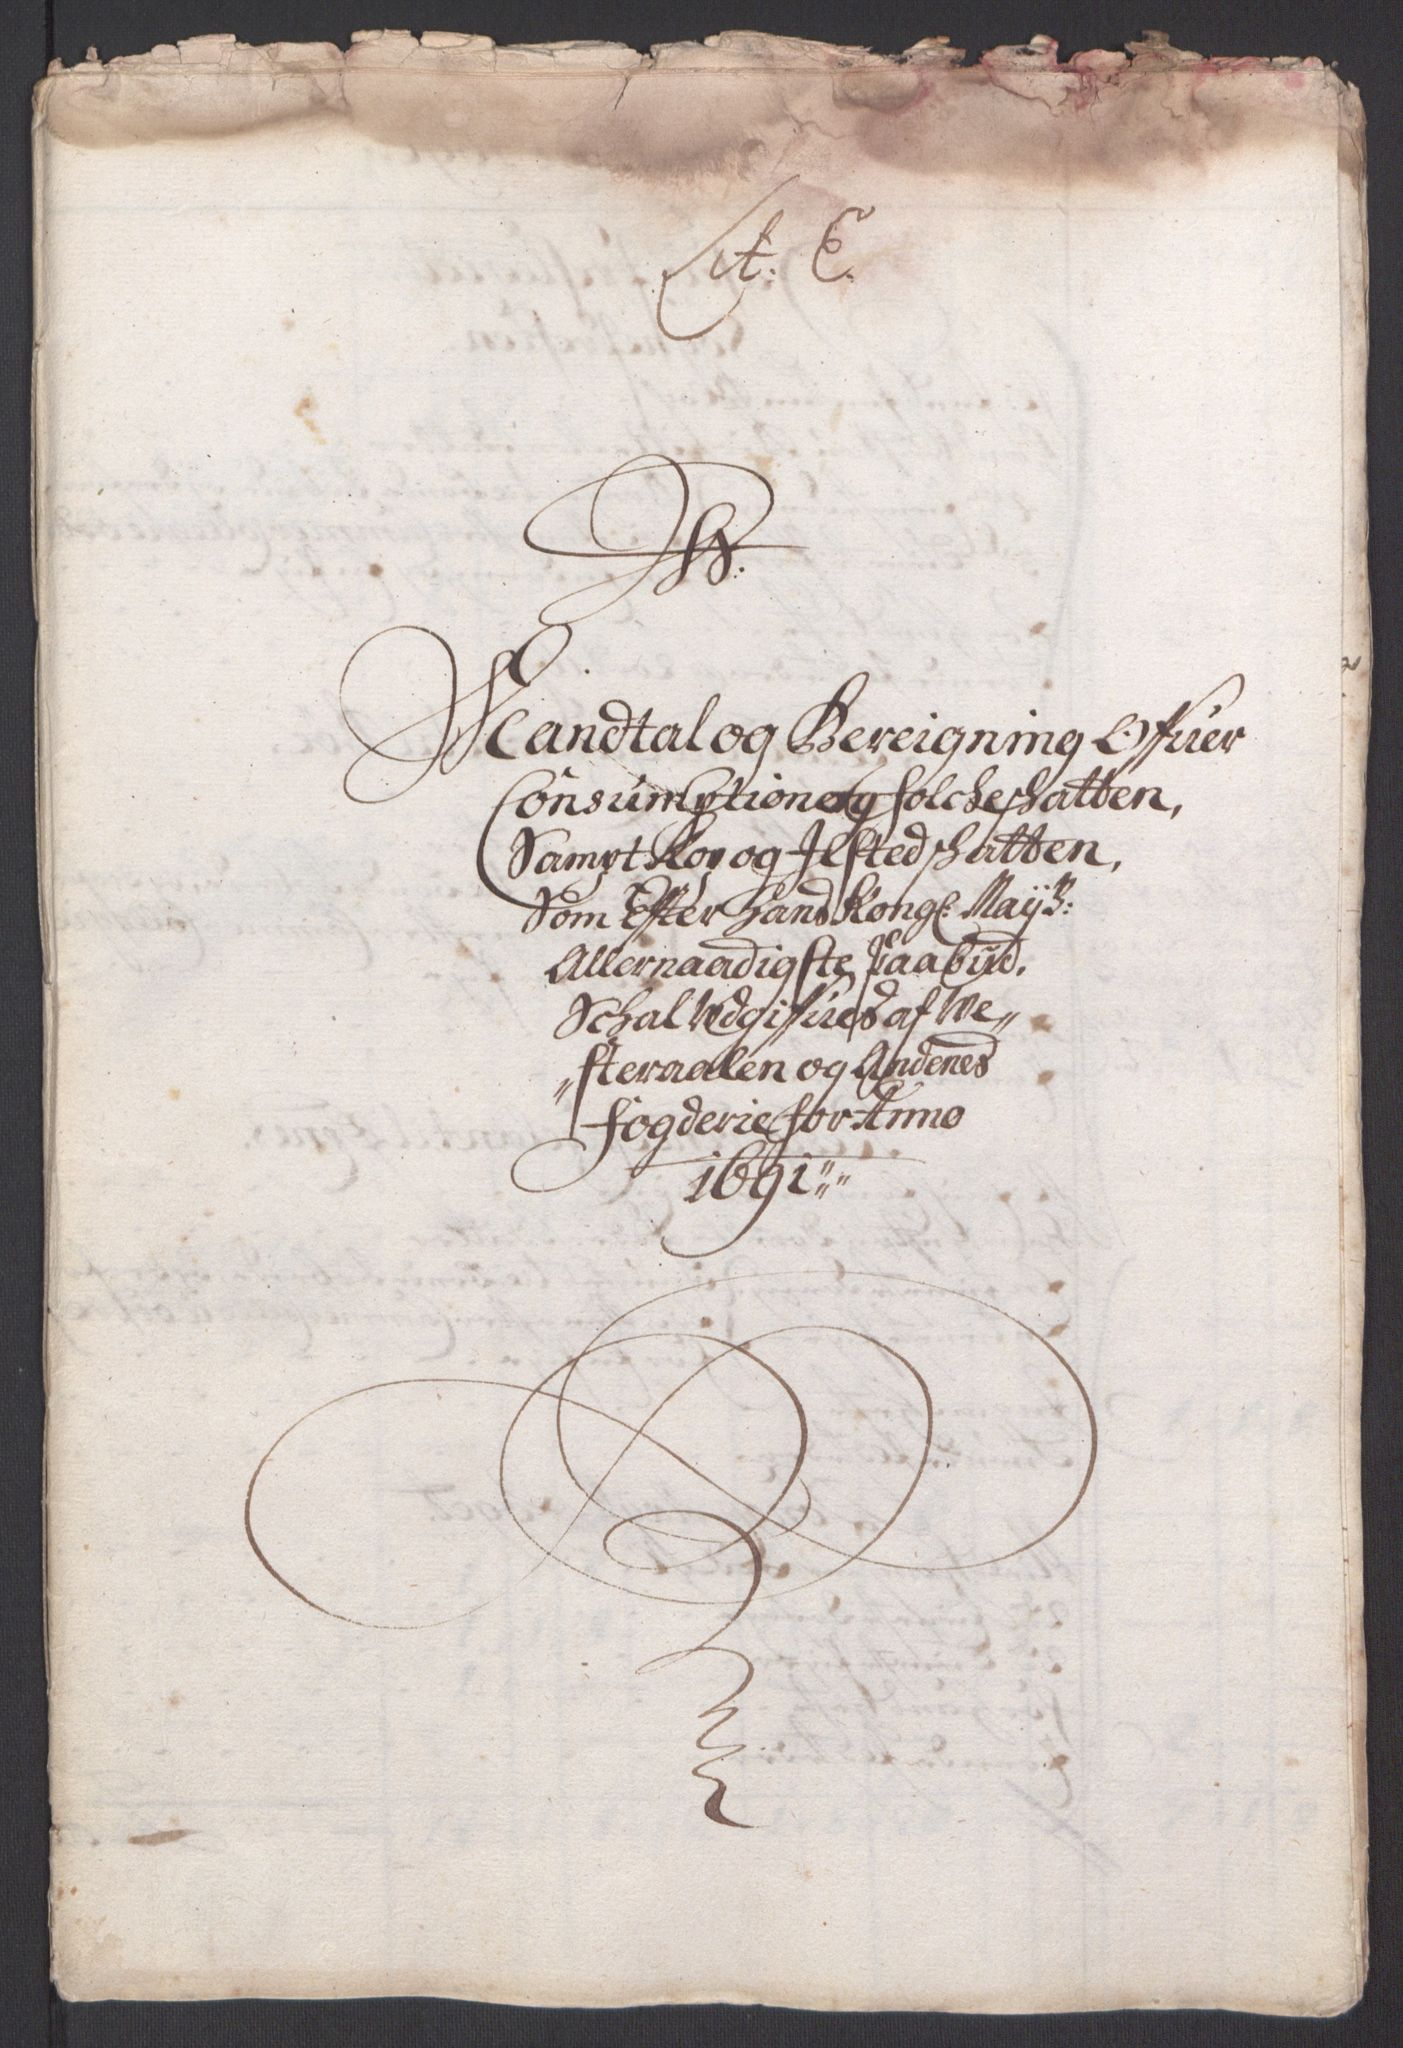 Lit: E.
Mandtal og Bereigning Offuer
Consumption og folcheschatten,
Sampt Kop og Ilsted schatten,
Som Efter Hans Kongl: Mayts:
Allernaadigste Paabud,
Schal Udgiffues af We„
„steraalen og Andenes
fogderie for Anno
1691„„